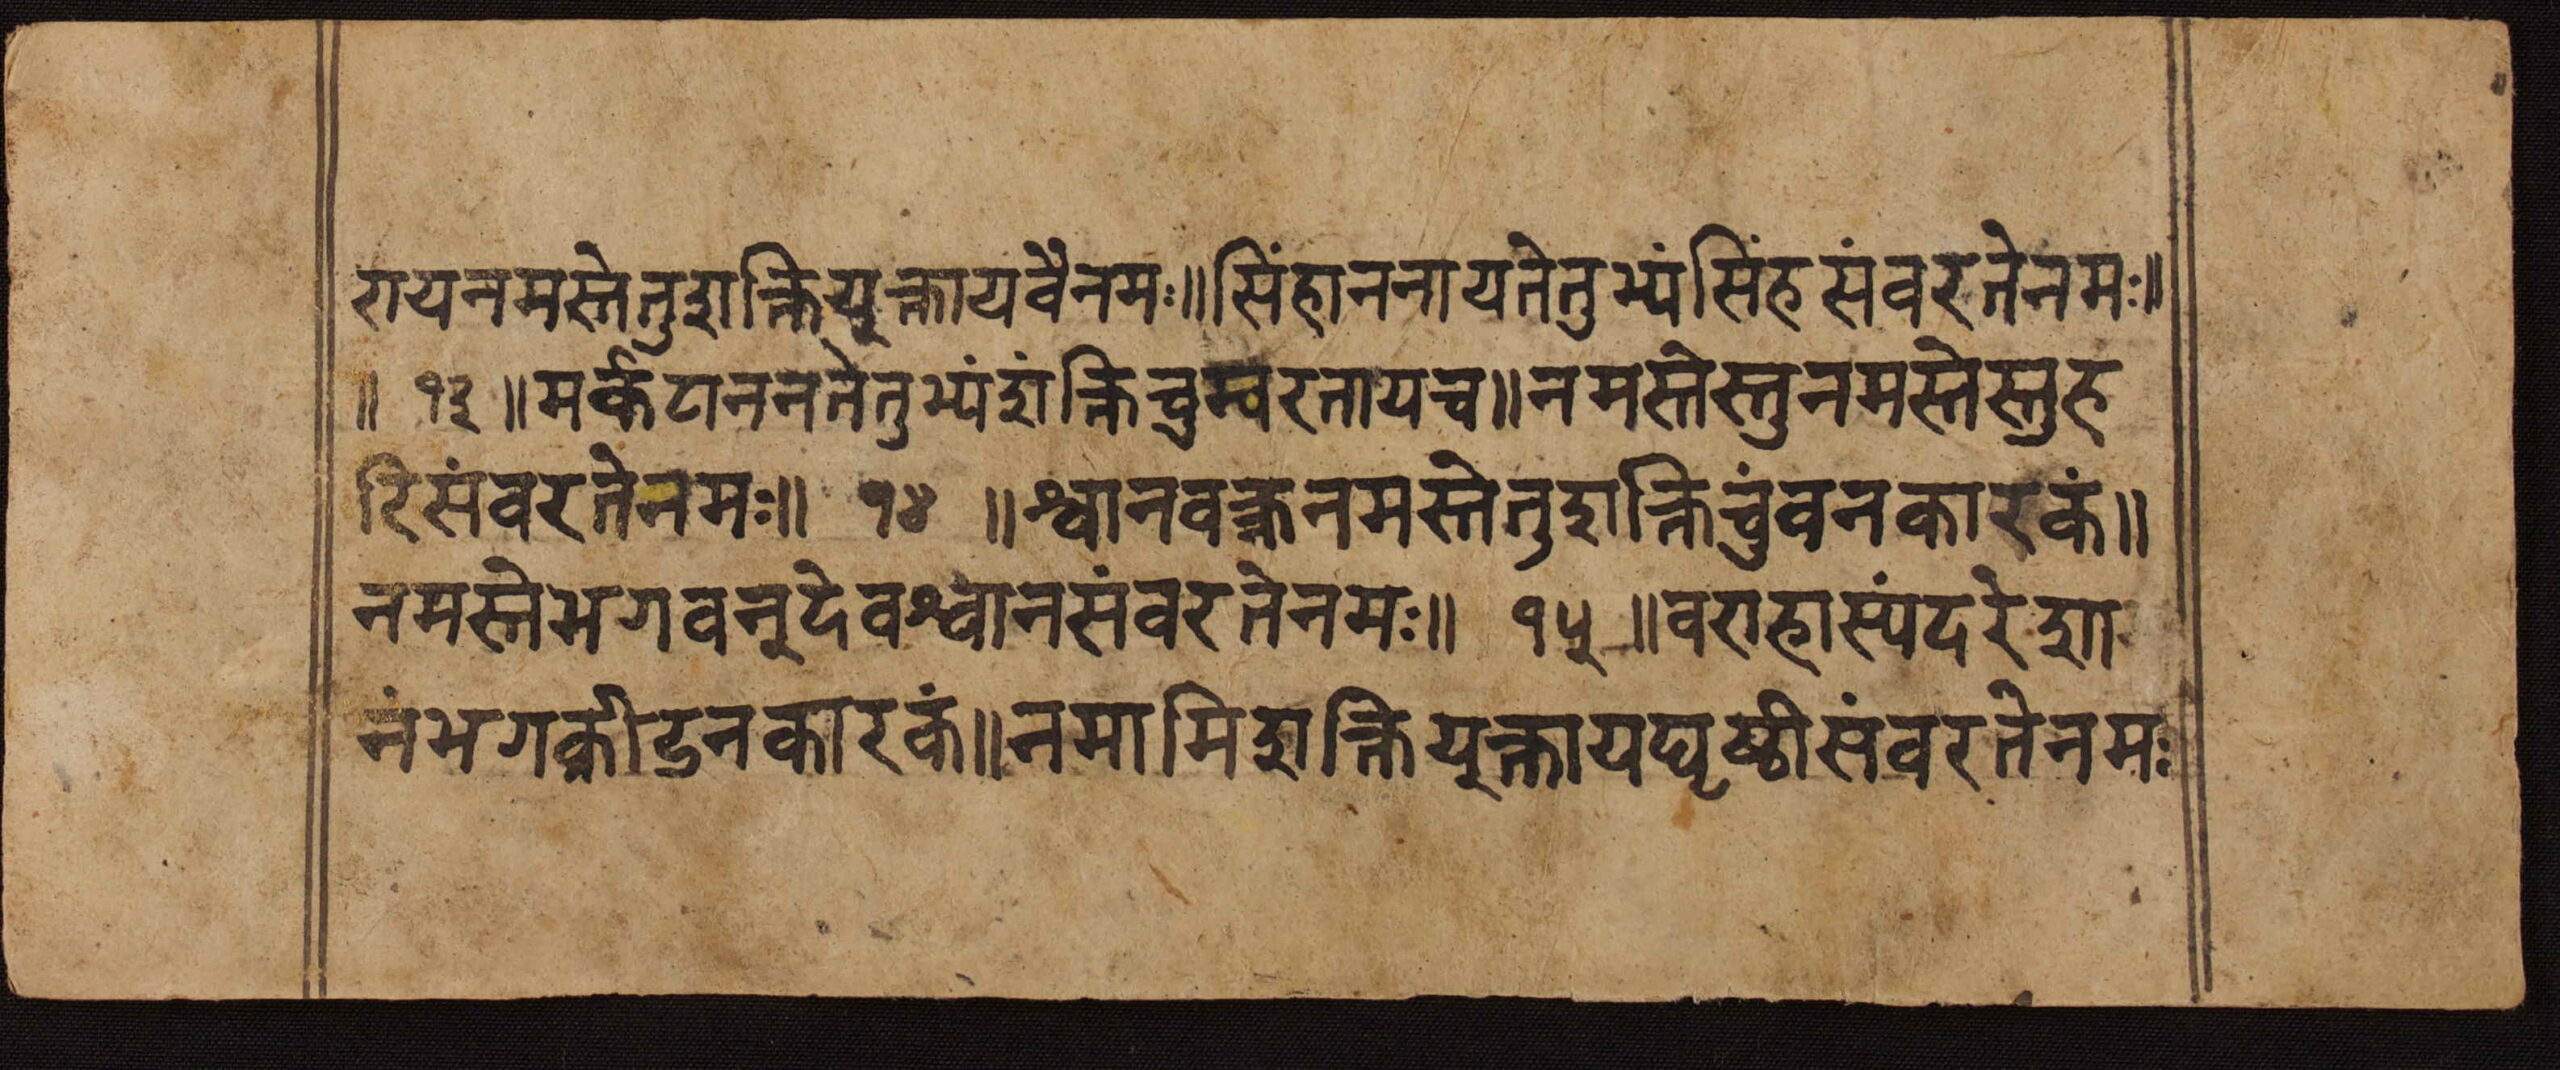 रायनमस्तेतुशक्तियुक्तायवैनमः॥सिंहाननायतेतुभ्यंसिंहसंवरतेनमः॥
॥ १३ ॥मर्कटाननतेतुभ्यंशंक्तिचुम्वरतायच॥नमस्तेस्तुनमस्तेस्तुह
रिसंवरतेनमः॥ १४ ॥श्वानवक्त्रनमस्तेतुशक्तिचुंवनकारकं॥
नमस्तेभगवन्देवश्वानसंवरतेनमः॥ १५ ॥वराहास्यंदरेशा
नंभगक्रीडनकारकं॥नमामिशक्तियुक्तायघृष्ठीसंवरतेनमः